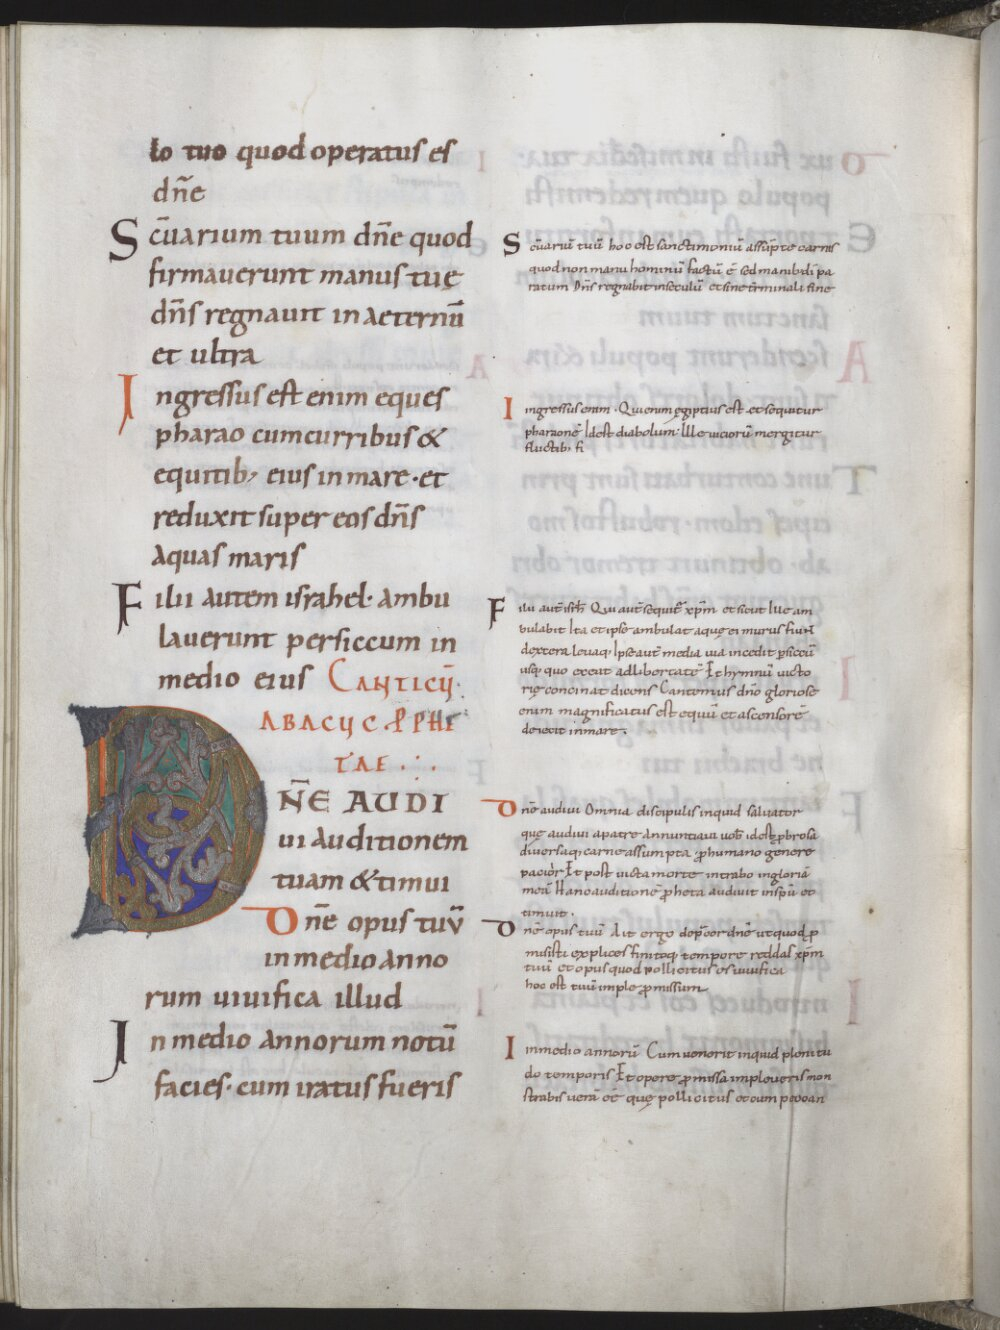 lo tuo quod operatus es
dn̄e
Sc̄uarium tuum dn̄e quod
firmauerunt manus tuę
dn̄s regnauit in aeternū
et ultra
Ingressus est enim eques
pharao cum curribus &
equitib; eius in mare · et
reduxit super eos dn̄s
aquas maris
Filii autem israhel · ambu
lauerunt per siccum in
medio eius CANTICŪ
ABACUC PPHE
TAE
DN̄E AUDI
ui auditionem
tuam & timui
Dn̄e opus tuū
in medio anno
rum uiuifica illud
In medio annorum notū
facies · cum iratus fueris
Sc̄uariū tuū hoc est sanctimoniū assūpte carnis
quod non manu hominū factū ē sed manib; dī pa
ratum Dn̄s regnabit in seculū et sine terminali fine
Ingressus enim · Qui enim egiptius est et sequitur
pharaonē Idest diabolum · Ille uiciorū mergitur
fluctib;
Filii aut̄ isrl̄ Qui aut̄ sequit̄ xp̄m et sicut ille am
bulabit Ita et ipse ambulat aque ei murus fiunt
dextera leuaq; Ipse aut̄ media uia incedit p siccū
usq; quo exeat ad libertatē Et hymnū uicto
rię concinat dicens Cantemus dn̄o gloriose
enim magnificatus est equū et ascensorē
deiecit in mare ·
Dn̄e audiui Omnia discipulis inquid saluator
quę audiui a patre annuntiaui uob̄ idest pbrosa
diuersaq; carne assumpta p humano genere
pacior Et post uicta morte intrabo in gloriā
meā Hanc auditionē ppheta audiuit in sp̄u et
timuit ·
Dn̄e opus tuū Ait ergo dep̄cor dn̄e ut quod p
misisti explices finitoq; tempore reddas xp̄m
tuū et opus quod pollicitus es uiuifica
hoc est tuū imple pmissum
In medio annorū Cum uenerit inquid plenitu
do temporis Et opere pmissa impleueris mon
strabis uera eē quę pollicitus et cum peccan